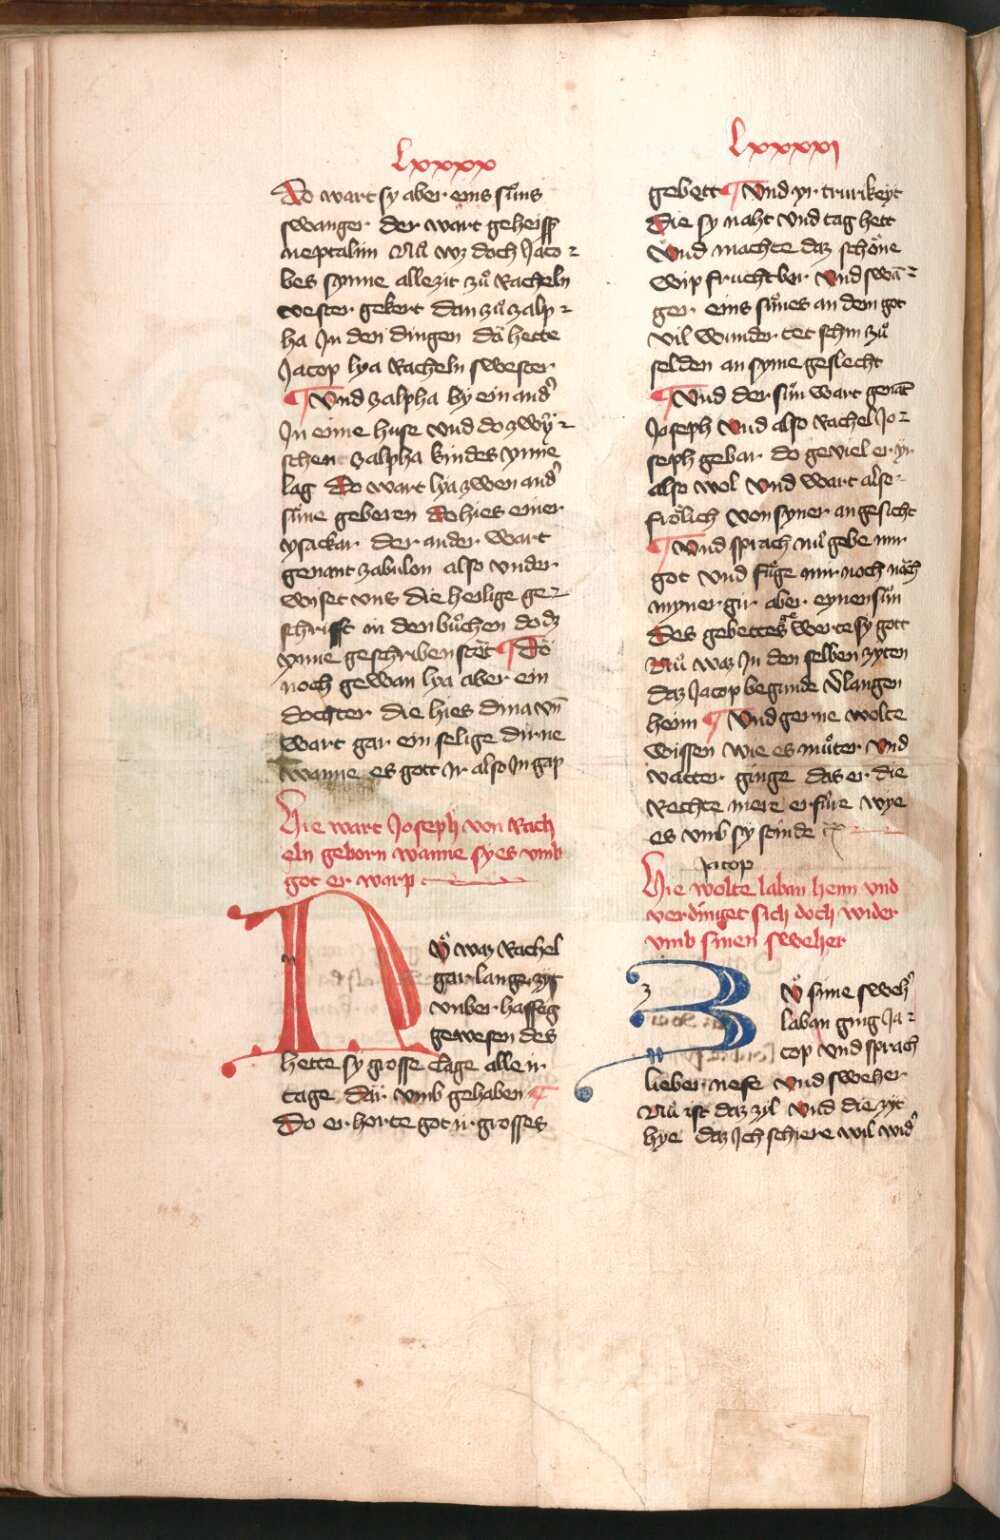 Lxxxx
Do wart sy aber eins suͦns
swanger der wart geheissƺ
neptalim Nuͦ wz doch Jaco⸗
bes synne allezit zuͦ Racheln
vester gekert dan zuͦ zalp⸗
ha In den dingen do hette
Jacop lya Racheln swester
¶ Vnd zalpha by ein and̾
In eime huse vnd do zwy⸗
schent zalpha kindes ynne
lag Do wart lya zwen and̾
suͦne geberen do hies einer
ysackar der ander wart
genant zabulon also vnder
wiset vns die heilige ge⸗
schrifft in den buͦchen do dz
ynne geschriben stet ¶ Do
noch gewan lya aber ein
dochter die hies dina vn̄
wart gar ein selige dirne
wanne es gott Ir also In gap
Hie wart Joseph von Rach
eln geborn wanne sy es vmb
got er warp
Nuͦ waz Rachel
gar lange zyt
vnber hafftig
gewesen des
hette sy grosse clage alle ir
tage dar vmb gehaben ¶
Do er horte got ir grosses
Lxxxxi
gebett ¶ Vnd yr trurikeyt
die sy naht vnd tag hett
Vnd machte daz schoͤne
wip fruchtber vnd swā⸗
ger eins suͦnes an dem got
vil wunder tet schin zuͦ
selden an syme geslecht
¶ Vnd der suͦn wart genāt
Joseph Vnd also Rachel Jo⸗
seph gebar do geviel er yr
also wol Vnd wart also⸗
froͤlich von syner angesicht
¶ Vnd sprach nuͦ gebe mir
got vnd fuͤge mir noch noch
myner gir aber eynen suͦn
Des gebettes werte sy gott
Nuͦ waz In den selben zyten
daz Jacop begunde v̾langen
heim ¶ Vnd gerne wolte
wissen wie es muͦter Vnd
vatter ginge das er die
Rechte mere erfuͤre wye
es vmb sy stuͦnde
Jacop
Hie wolte laban heim vnd
verdinget sich doch wider
vmb sinen sweher
Zuͦ sime sweh̾
laban ging Ja⸗
cop vnd sprach
lieber nefe vnd sweher
Nuͦ ist daz zyl vnd die zyt
hye daz Ich schiere wil wid̾